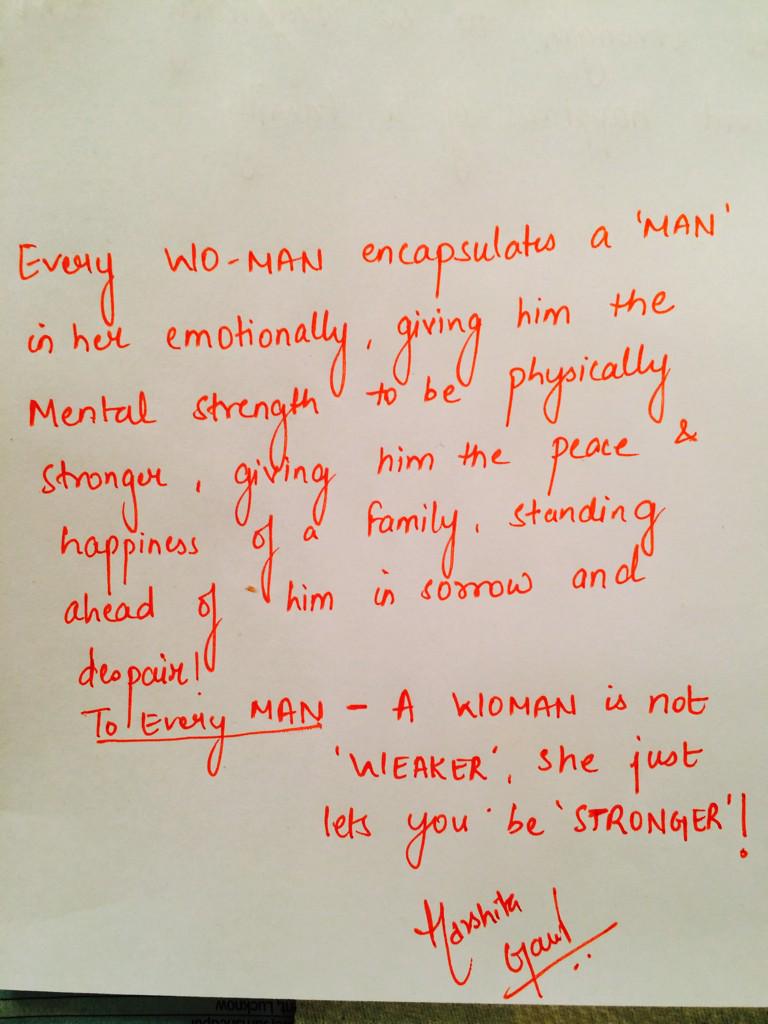 Every WO-MAN encapsulates a 'MAN'
in her emotionally, giving him the
Mental strength to be physically
stronger, giving him the peace &
happiness of a family, standing
ahead of him in sorrow and
despair!
To Every MAN - A WOMAN is not
'WEAKER', she just
lets you be 'STRONGER'!
Harshita
Gaur